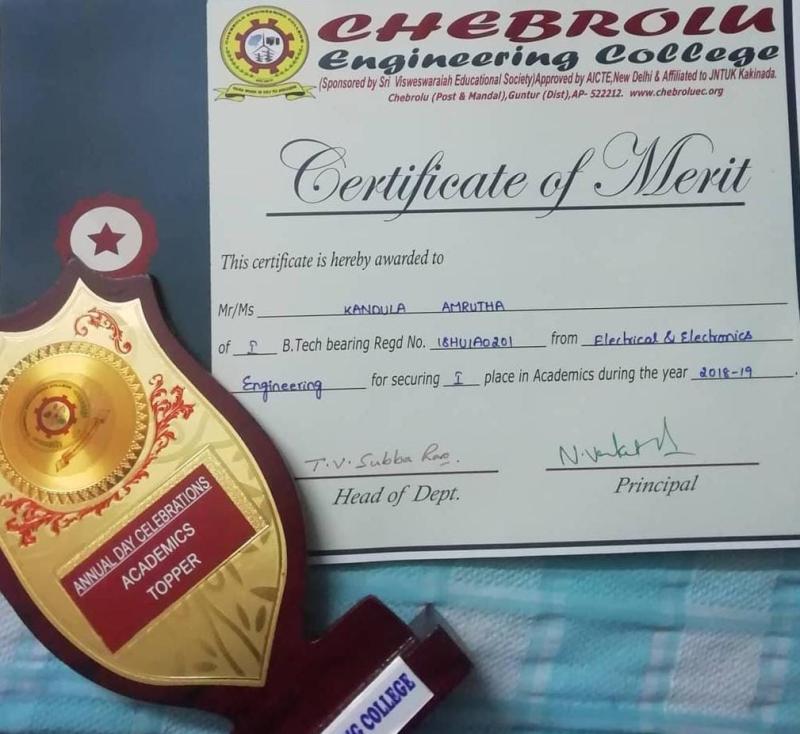 CHEBROLU
Engineering College
(Sponsored by Sri Visweswaraiah Educational Society)Approved by AICTE,New Delhi & Affiliated to JNTUK Kakinada.
Chebrolu (Post & Mandal),Guntur (Dist),AP- 522212. www.chebroluec.org
Certificate of Merit
This certificate is hereby awarded to
Mr/Ms KANDULA AMRUTHA
of I B.Tech bearing Regd No. 18HU1A0201 from Electrical & Electronics
Engineering for securing I place in Academics during the year 2018-19.
T.V. Subba Rao.
Head of Dept.
Principal
ANNUAL DAY CELEBRATIONS
ACADEMICS
TOPPER
COLLEGE